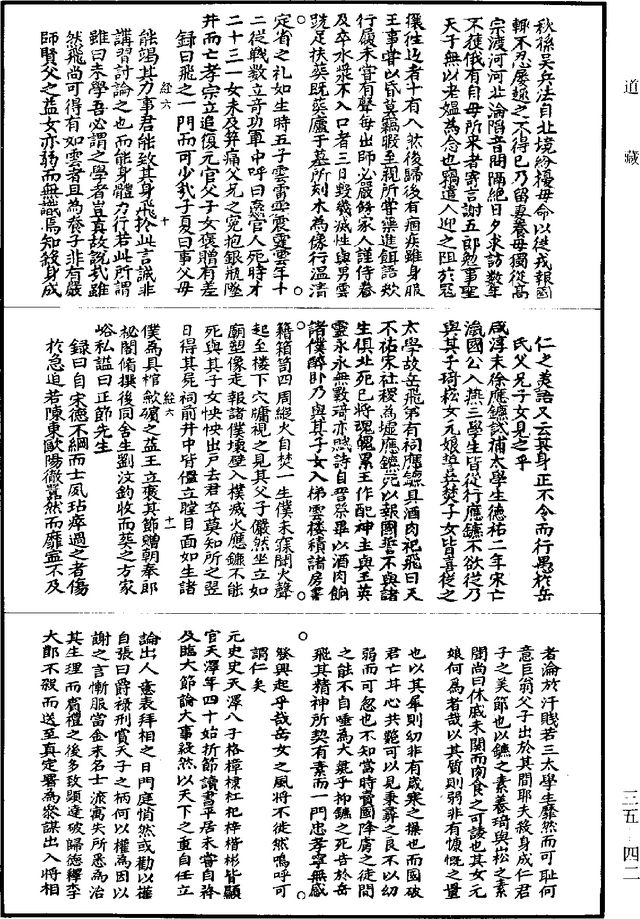 道藏
秋孫吳兵法自北境紛擾母命以從戎報國
輒不忍屢趣之不得已乃留妻養母獨從高
宗渡河河北淪陷音問隔絕日夕求訪數年
不獲俄有自母所來者寄言謝五郎勉事聖
天子無以老媼為念也竊遣人迎之阻於寇
攘往返者十有八然後歸後有痼疾雖身服
王事嘗以昏莫竊暇至視所嘗藥進餌語欬
行履未嘗有聲每出師必嚴飭家人謹侍養
及卒水漿不入口者三日毀幾滅性與男雲
跣足扶葬既葬廬于墓所刻木為像行溫凊
定省之礼如生時五子雲雷霖震霆雲年十
二從戰數立奇功軍中呼曰贏官人死時才
二十三一女未及笄痛父死之冤抱銀瓶墜
井而亡孝宗立追復元官父子女褒贈有差
錄曰飛之一門而可少哉子夏曰事父母
能竭其力事君能致其身飛於此言誠非
講習討論之也而能身體力行若此所謂
雖曰未學吾必謂之學者豈真故說哉雖
然飛尚可得有如雲者且為養子非有嚴
師賢父之益女亦弱而無識焉知殺身成
經六 十
仁之美語又云其身正不令而行愚於岳
氏父兄子女見之乎
咸淳末徐應鑣試補太學生德祐二年宋亡
瀛國公入燕三學生皆從行應鑣不欲從乃
與其子琦崧女元娘誓共焚子女皆喜從之
太學故岳飛第有祠應鑣具酒肉祀飛曰天
不祐宋社稷為墟應鑣死以報國誓不與諸
生俱北死已將魂魄累王作配神主與王英
靈永永無斁琦亦賦詩自誓祭畢以酒肉餉
諸僕醉卧乃與其子女入梯雲樓積諸房書
籍箱笥四周縱火自焚一生僕未寐聞火聲
起至樓下穴牖視之見其父子儼然坐立如
廟塑像走報諸僕壞壁入撲滅火應鑣不能
死與其子女怏怏出戶去君卒莫知所之翌
日得其屍祠前井中皆僵立瞠目面如生諸
僕為具棺歛殯之益王立褒其節贈朝奉郎
祕閣脩撰後同舍生劉汶鈞收而葬之方家
峪私謚曰正節先生
錄曰自宋德不綱而士夙玷瘁過之者傷
於急迫若陳東歐陽徹蠶然而靡盃不及
經六 十一
者淪於汙賤若三太學生靡然而可恥何
意巨翁父子出於其間耶夫殺身成仁君
子之美節也以鑣之素養琦與崧之素
聞尚曰休戚未關而肉食之可諉也其女元
娘何為者哉以其質則弱非有慷慨之量
也以其年則幼非有歲寒之操也而國破
君亡耳心共䓗可以見秉彝之良不以幼
弱而可忽也不知當時賣國降虜之徒聞
之能不自唾為犬彘乎抑鑣之死告於岳
飛其精神所契有素而一門忠孝寧無感
發興起乎哉岳女之風將不徒然嗚呼可
謂仁矣
元史史天澤八子格樟棣杠杞梓楷彬皆顯
官天澤年四十始折節讀書平居未嘗自矜
及臨大節論大事毅然以天下之重自任立
論出人意表拜相之日門庭悄然或勸以權
自張曰爵祿刑賞天子之柄何以權為因以
謝之言慚服當金末名士流寓失所悉為治
其生理而賓禮之後多致顯達破歸德釋李
大郎不殺而送至真定署為參謀出入將相
三五—四二